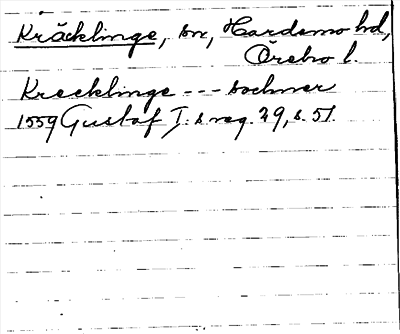 Kräcklinge, sn, Hardemo hd,
Örebro l.
Krecklinge --- sochner
1559 Gustaf I:s reg. 29, s. 51.